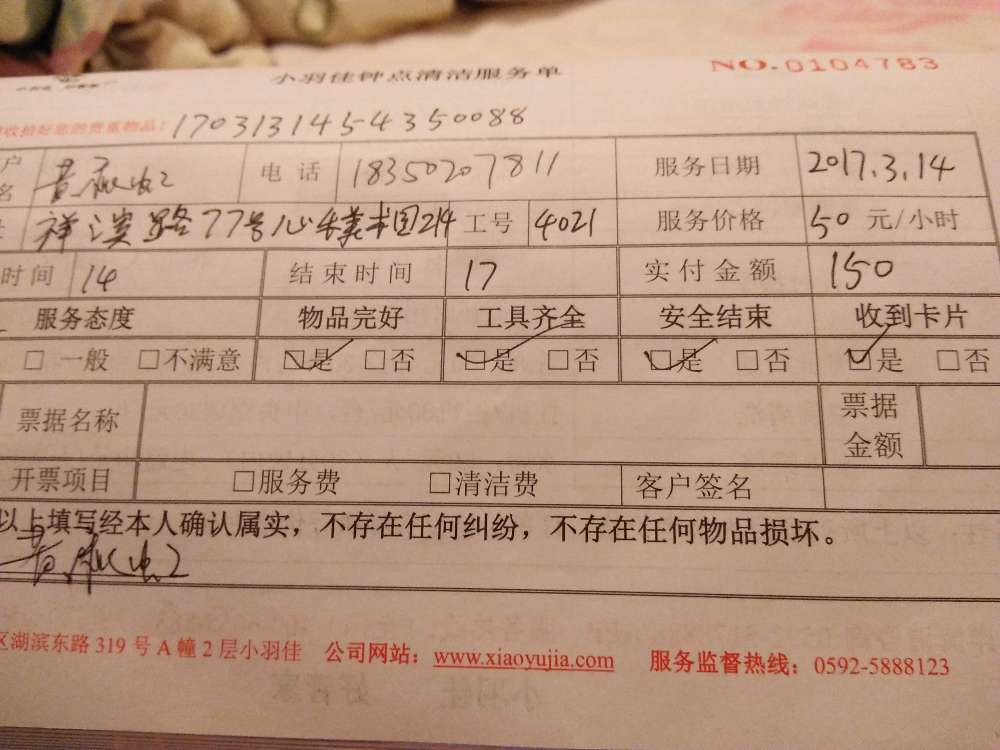 小羽佳钟点清洁服务单 NO.0104783
收拾好您的贵重物品: 1703131454350088
户名 电话 18350207811 服务日期 2017.3.14
祥滨路77号心 214 工号 4021 服务价格 50 元/小时
时间 14 结束时间 17 实付金额 150
服务态度 物品完好 工具齐全 安全结束 收到卡片
□ 一般 □不满意 ☑是 □否 ☑是 □否 ☑是 □否 ☑是 □否
票据名称 票据金额
开票项目 □服务费 □清洁费 客户签名
以上填写经本人确认属实，不存在任何纠纷，不存在任何物品损坏。
区湖滨东路 319 号 A 幢 2 层小羽佳 公司网站：www.xiaoyujia.com 服务监督热线：0592-5888123